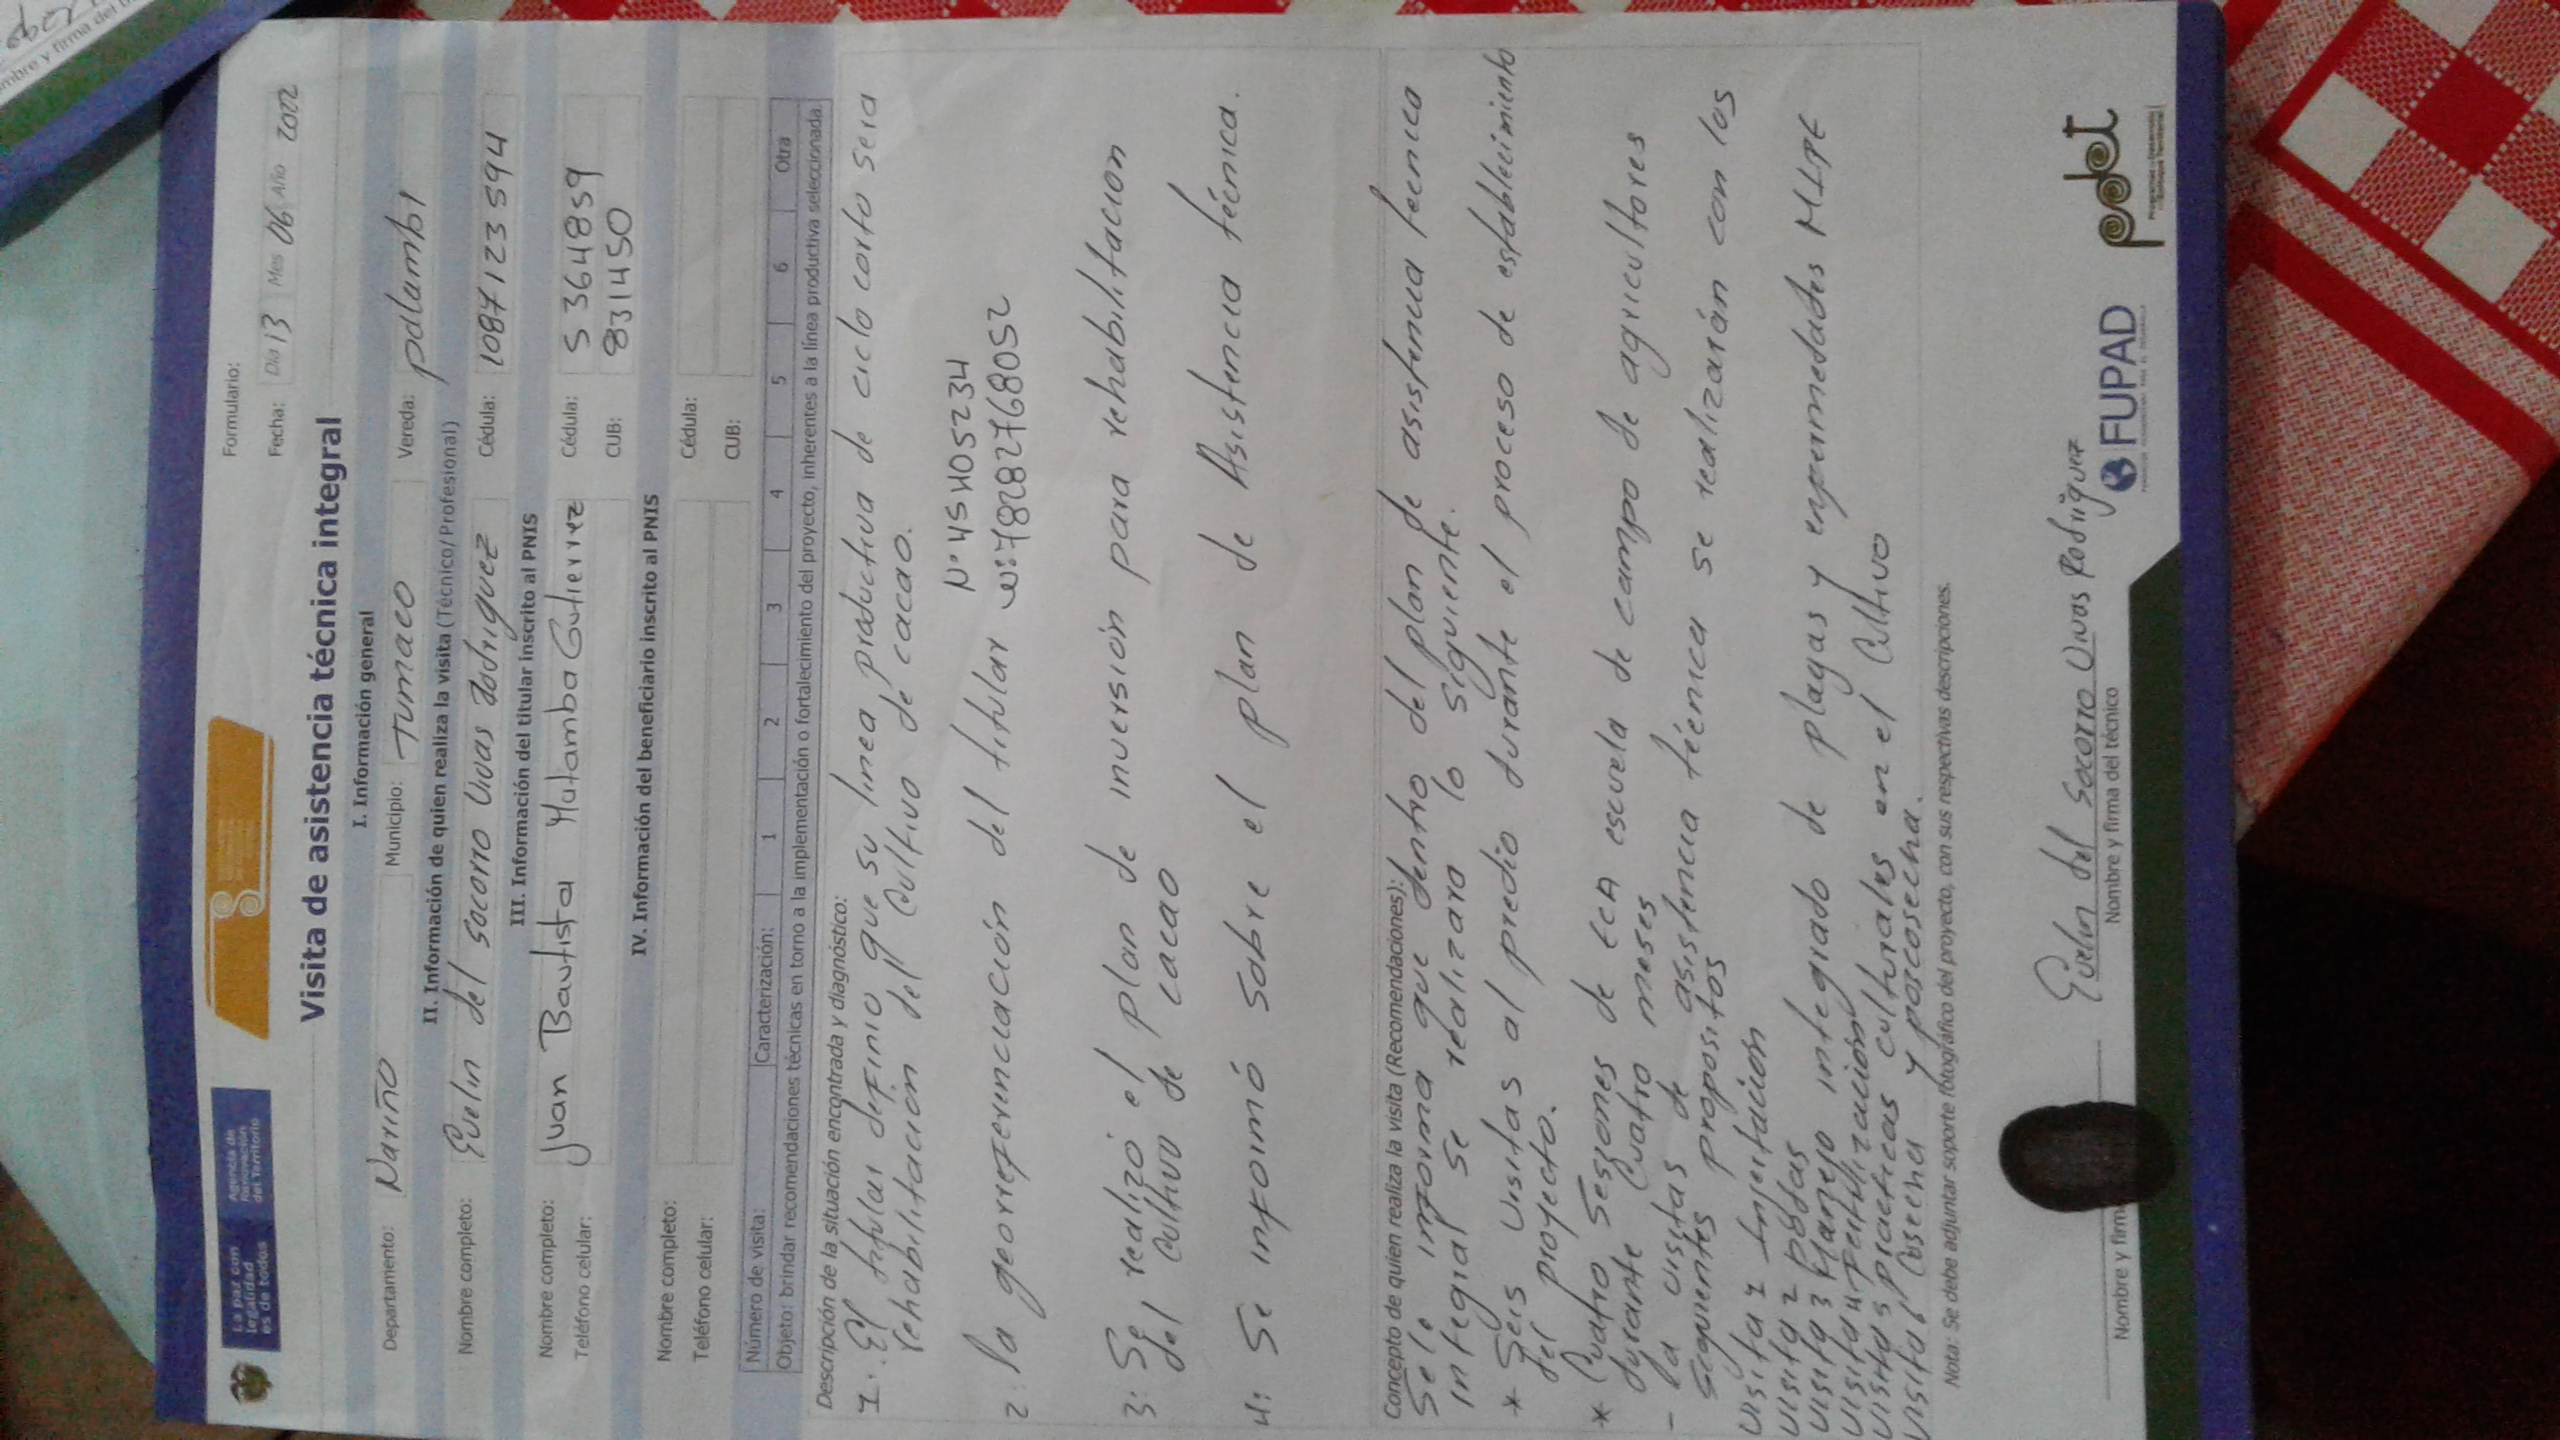 La paz con
legalidad
es de todos
Agencia de
Renovación
del Territorio
Formulario:
Fecha: Día 13 Mes 06 Año 2022
Visita de asistencia técnica integral
I. Información general
Departamento: Nariño Municipio: Tumaco Vereda: palambi
II. Información de quien realiza la visita (Técnico/Profesional)
Nombre completo: Evelin del socorro Vivas Rodriguez Cédula: 1087123594
III. Información del titular inscrito al PNIS
Nombre completo: Juan Bautista Mutamba Gutierrez Cédula: 5364859
Teléfono celular: CUB: 831450
IV. Información del beneficiario inscrito al PNIS
Nombre completo: Cédula:
Teléfono celular: CUB:
Número de visita: Caracterización: 1 2 3 4 5 6 Otra
Objeto: brindar recomendaciones técnicas en torno a la implementación o fortalecimiento del proyecto, inherentes a la línea productiva seleccionada.
Descripción de la situación encontrada y diagnóstico:
1. El titular definio que su linea productiva de ciclo corto sera
rehabilitación del Cultivo de cacao.
N° 45405234
2: la georreferenciación del titular w:78282768052
3: Se realizó el plan de inversión para rehabilitación
del Cultivo de cacao
4: Se informó sobre el plan de Asistencia técnica.
Concepto de quien realiza la visita (Recomendaciones):
Se le informa que dentro del plan de asistencia tecnica
integral se realizara lo siguiente.
* Seis visitas al predio durante el proceso de establecimiento
del proyecto.
* Cuatro Sesiones de ECA escuela de campo de agricultores
durante Cuatro meses
- la visitas de asistencia técnica se realizarán con los
siguientes propositos
Visita 1 Injertación
Visita 2 podas
Visita 3 Manejo integrado de plagas y enfermedades MIPE
Visita 4 fertilización
Visita 5 practicas culturales en el Cultivo
Visita 6 Cosecha y poscosecha.
Nota: Se debe adjuntar soporte fotográfico del proyecto, con sus respectivas descripciones.
Evelin del Socorro Vivas Rodriguez
Nombre y firma
Nombre y firma del técnico
FUPAD
pdet